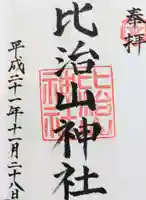 奉拝
比治山神社
平成二十一年十一月二十八日